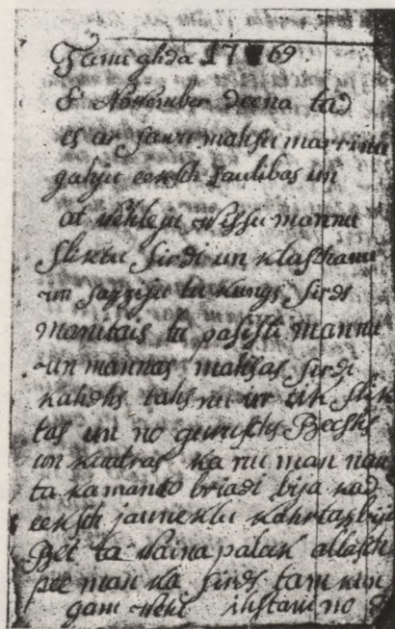 Tami ghda 1769.
8 November deena tad
es ar sawu mahsu marrinu
gahju eeksch Laulibas un
at wehleju wissu mannu
sliktu sirdi un
un sazziju tu kungs sirds
manitais tu pasihsti mannu
un mannas mahsas sirdi
kahdas tahs nu ir tik slik
tas un no
un kuitras ka nu man nau
ta kamanto briadi bija kad
eeksch jauneklu kahrtas bij
Bet ta waina paleek allasch
pee man ka sirds tam kun
gam no